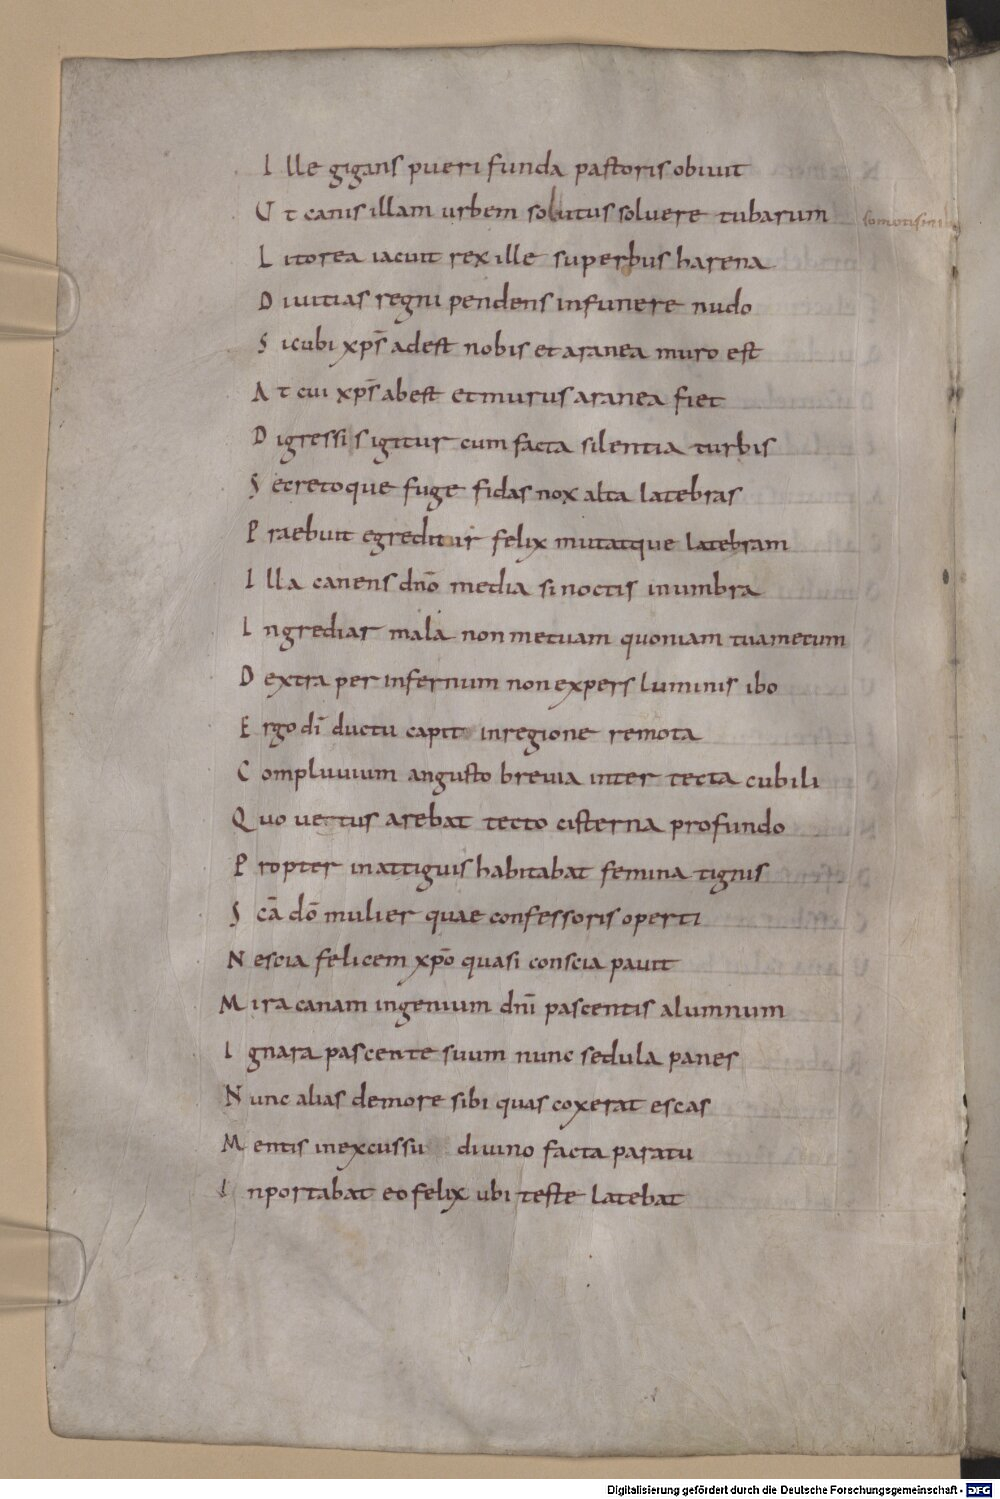 Ille gigans pueri funda pastoris obiuit
Ut canis illam urbem solutus soluere tubarum
Litorea iacuit rex ille superbus harena
Diuitias regni pendens in funere nudo
Sicubi xp̅s adest nobis et aranea muro est
At cui xp̅s abest et murus aranea fiet
Digressis igitur cum facta silentia turbis
Secretoque fuge fidas nox alta latebras
Praebuit egreditur felix mutatque latebram
Illa canens dn̅o media si noctis in umbra
Ingrediar mala non metuam quoniam tua mecum
Dextra per infernum non expers luminis ibo
Ergo di̅ ductu capit in regione remota
Compluuium angusto breuia inter tecta cubili
Quo uetus arebat tecto cisterna profundo
Propter in attiguis habitabat femina tignis
Sc̅a do̅ mulier quae confessoris operti
Nescia felicem xp̅o quasi conscia pauit
Mira canam ingenium dn̅i pascentis alumnum
Ignara pascente suum nunc sedula panes
Nunc alias de more sibi quas coxerat escas
Mentis in excussu diuino facta paratu
Inportabat eo felix ubi teste latebat
Digitalisierung gefördert durch die Deutsche Forschungsgemeinschaft - DFG